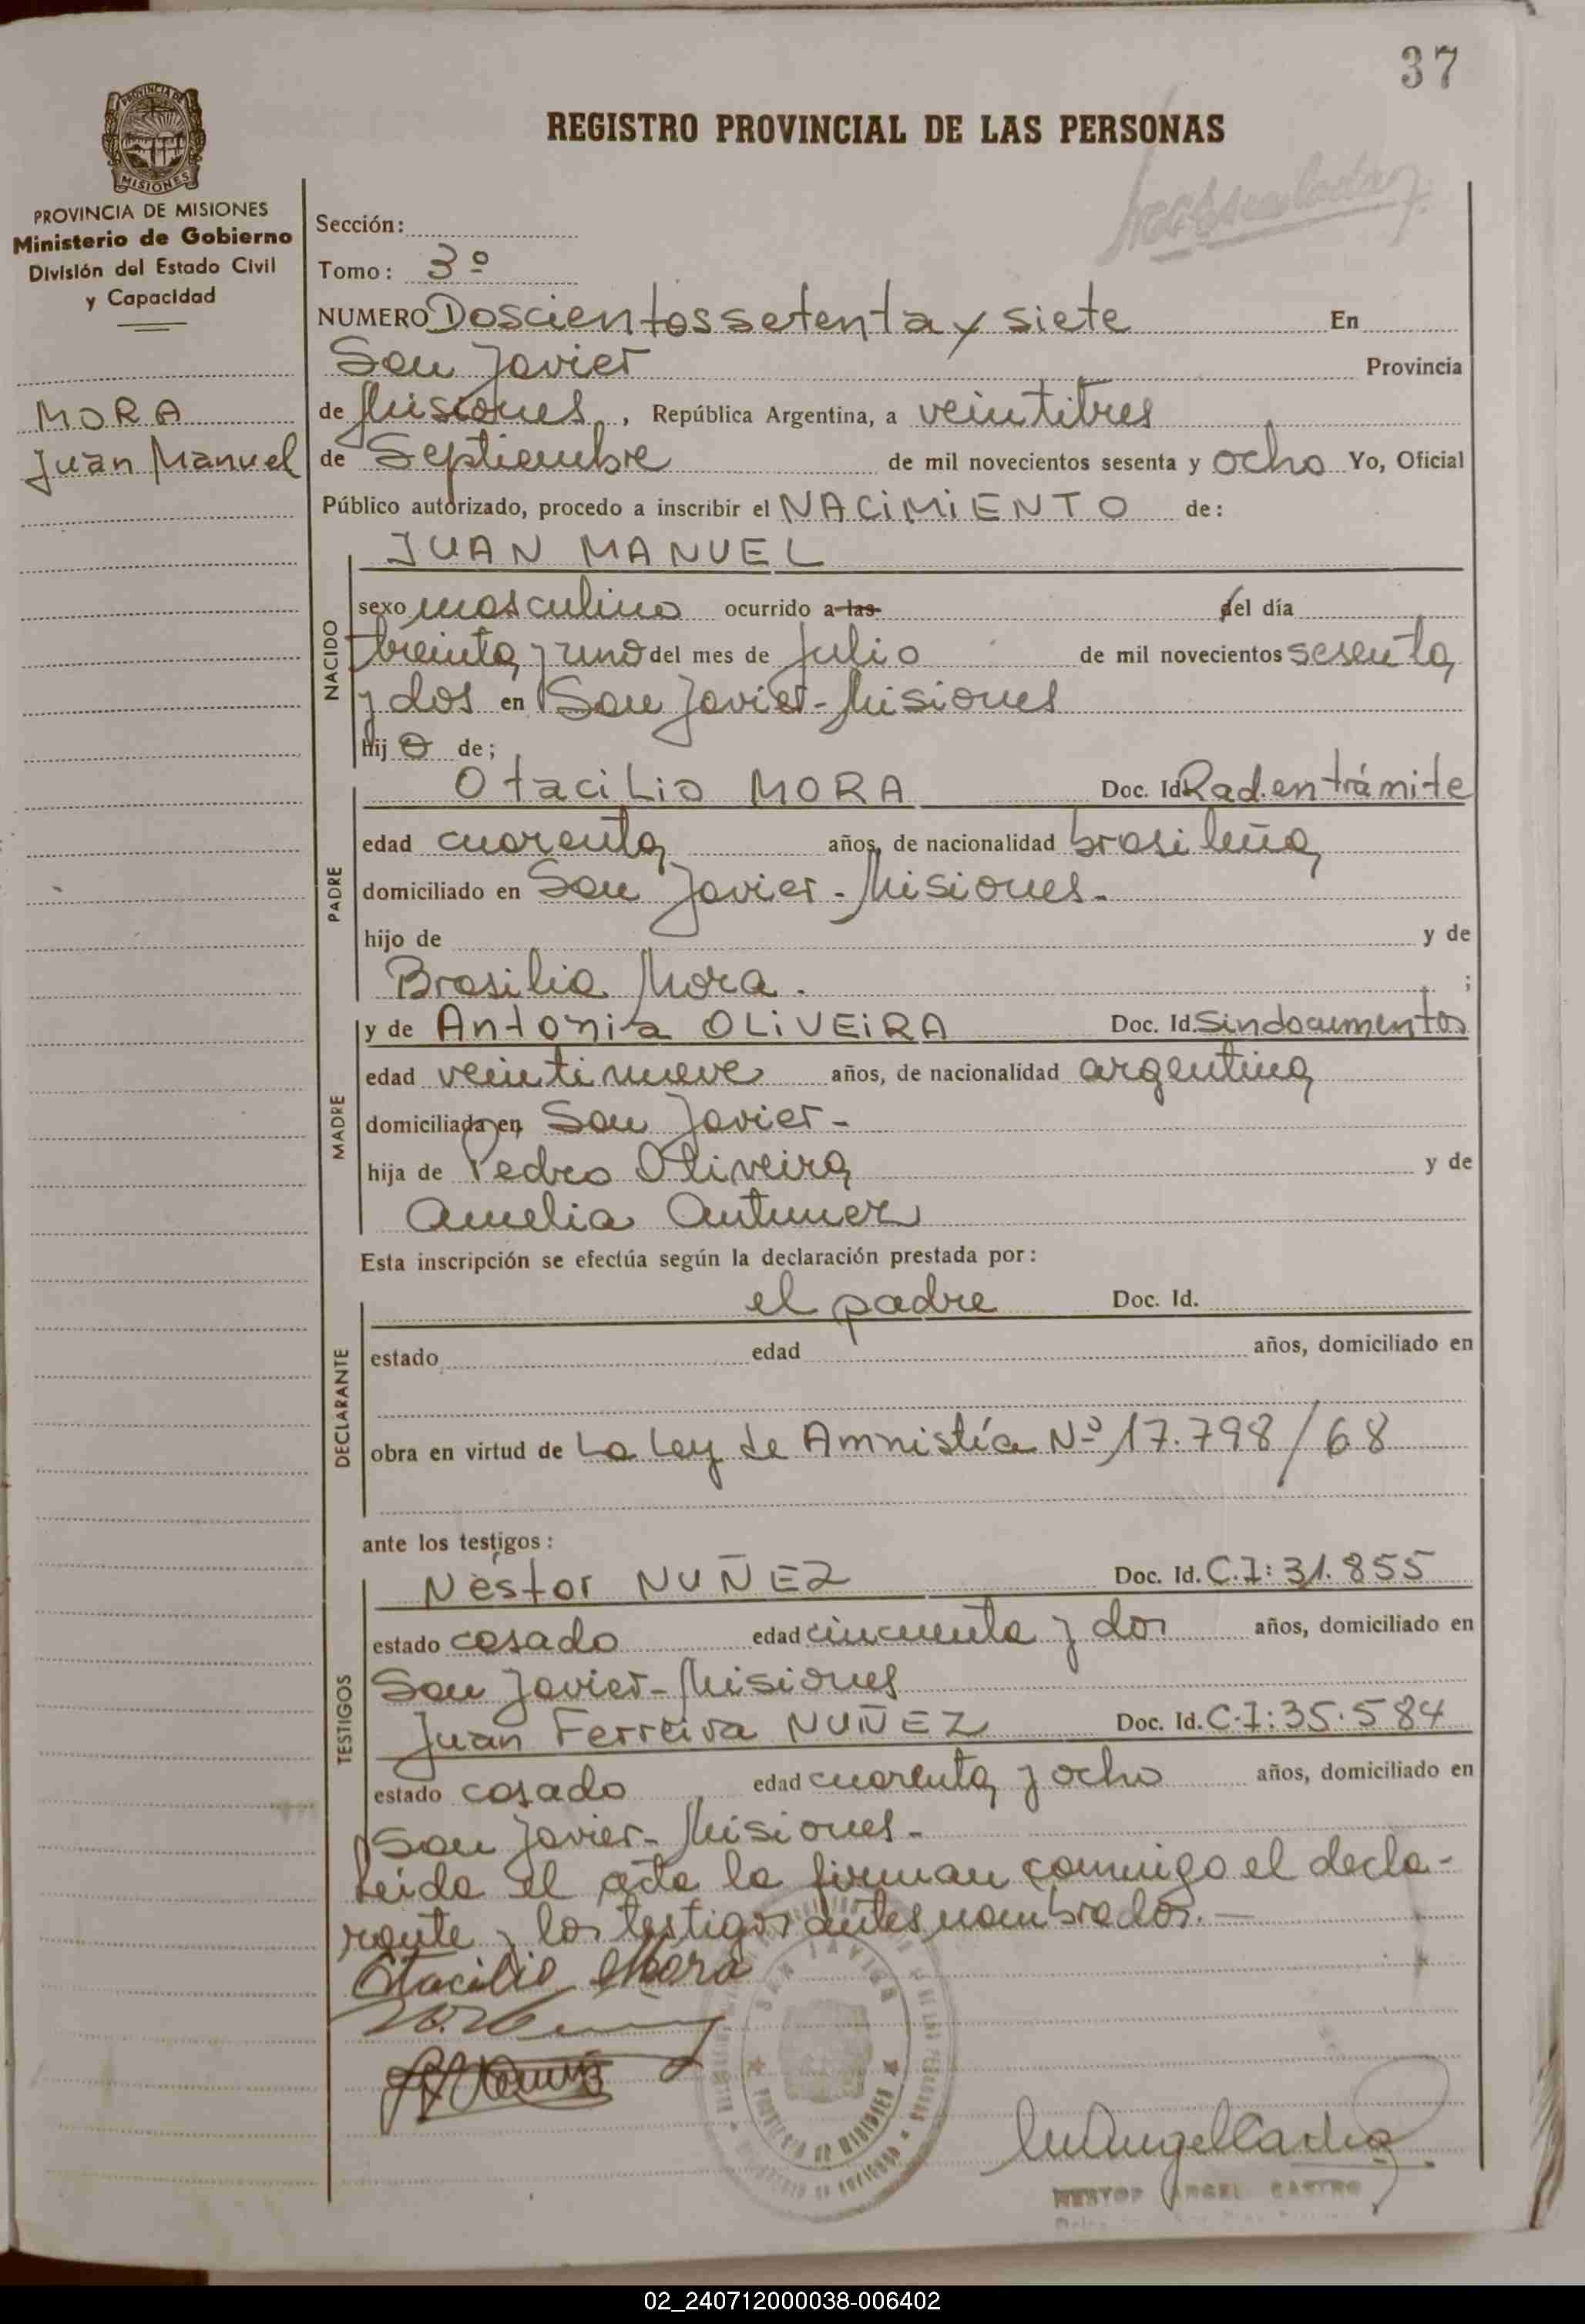 37
PROVINCIA DE
MISIONES
REGISTRO PROVINCIAL DE LAS PERSONAS
PROVINCIA DE MISIONES
Ministerio de Gobierno
División del Estado Civil
y Capacidad
MORA
Juan Manuel
Sección:
Tomo: 3º
NUMERO Doscientos setenta y siete En
San Javier Provincia
de Misiones, República Argentina, a veintitres
de Septiembre de mil novecientos sesenta y ocho Yo, Oficial
Público autorizado, procedo a inscribir el NACIMIENTO de:
JUAN MANUEL
NACIDO
sexo masculino ocurrido a las del día
treinta y uno del mes de Julio de mil novecientos sesenta
y dos en San Javier - Misiones
hijo de;
PADRE
Otacilio MORA Doc. Id. Rad. en trámite
edad cuarenta años, de nacionalidad brasileña
domiciliado en San Javier - Misiones.
hijo de y de
Brasilia Mora. ;
MADRE
y de Antonia OLIVEIRA Doc. Id. Sin documentos
edad veintinueve años, de nacionalidad argentina
domiciliada en San Javier -
hija de Pedro Oliveira y de
Amelia Antunez
Esta inscripción se efectúa según la declaración prestada por:
DECLARANTE
el padre Doc. Id.
estado edad años, domiciliado en
obra en virtud de La Ley de Amnistía Nº 17.798/68
ante los testigos:
TESTIGOS
Néstor NUÑEZ Doc. Id. C.I: 31.855
estado casado edad cincuenta y dos años, domiciliado en
San Javier - Misiones
Juan Ferreira NUÑEZ Doc. Id. C.I: 35.584
estado casado edad cuarenta y ocho años, domiciliado en
San Javier - Misiones -
Leida el acta la firman conmigo el decla-
rante y los testigos antes nombrados. -
Otacilio Mora
SAN JAVIER
PROVINCIA DE MISIONES
NESTOR ANGEL CASTRO
02_240712000038-006402